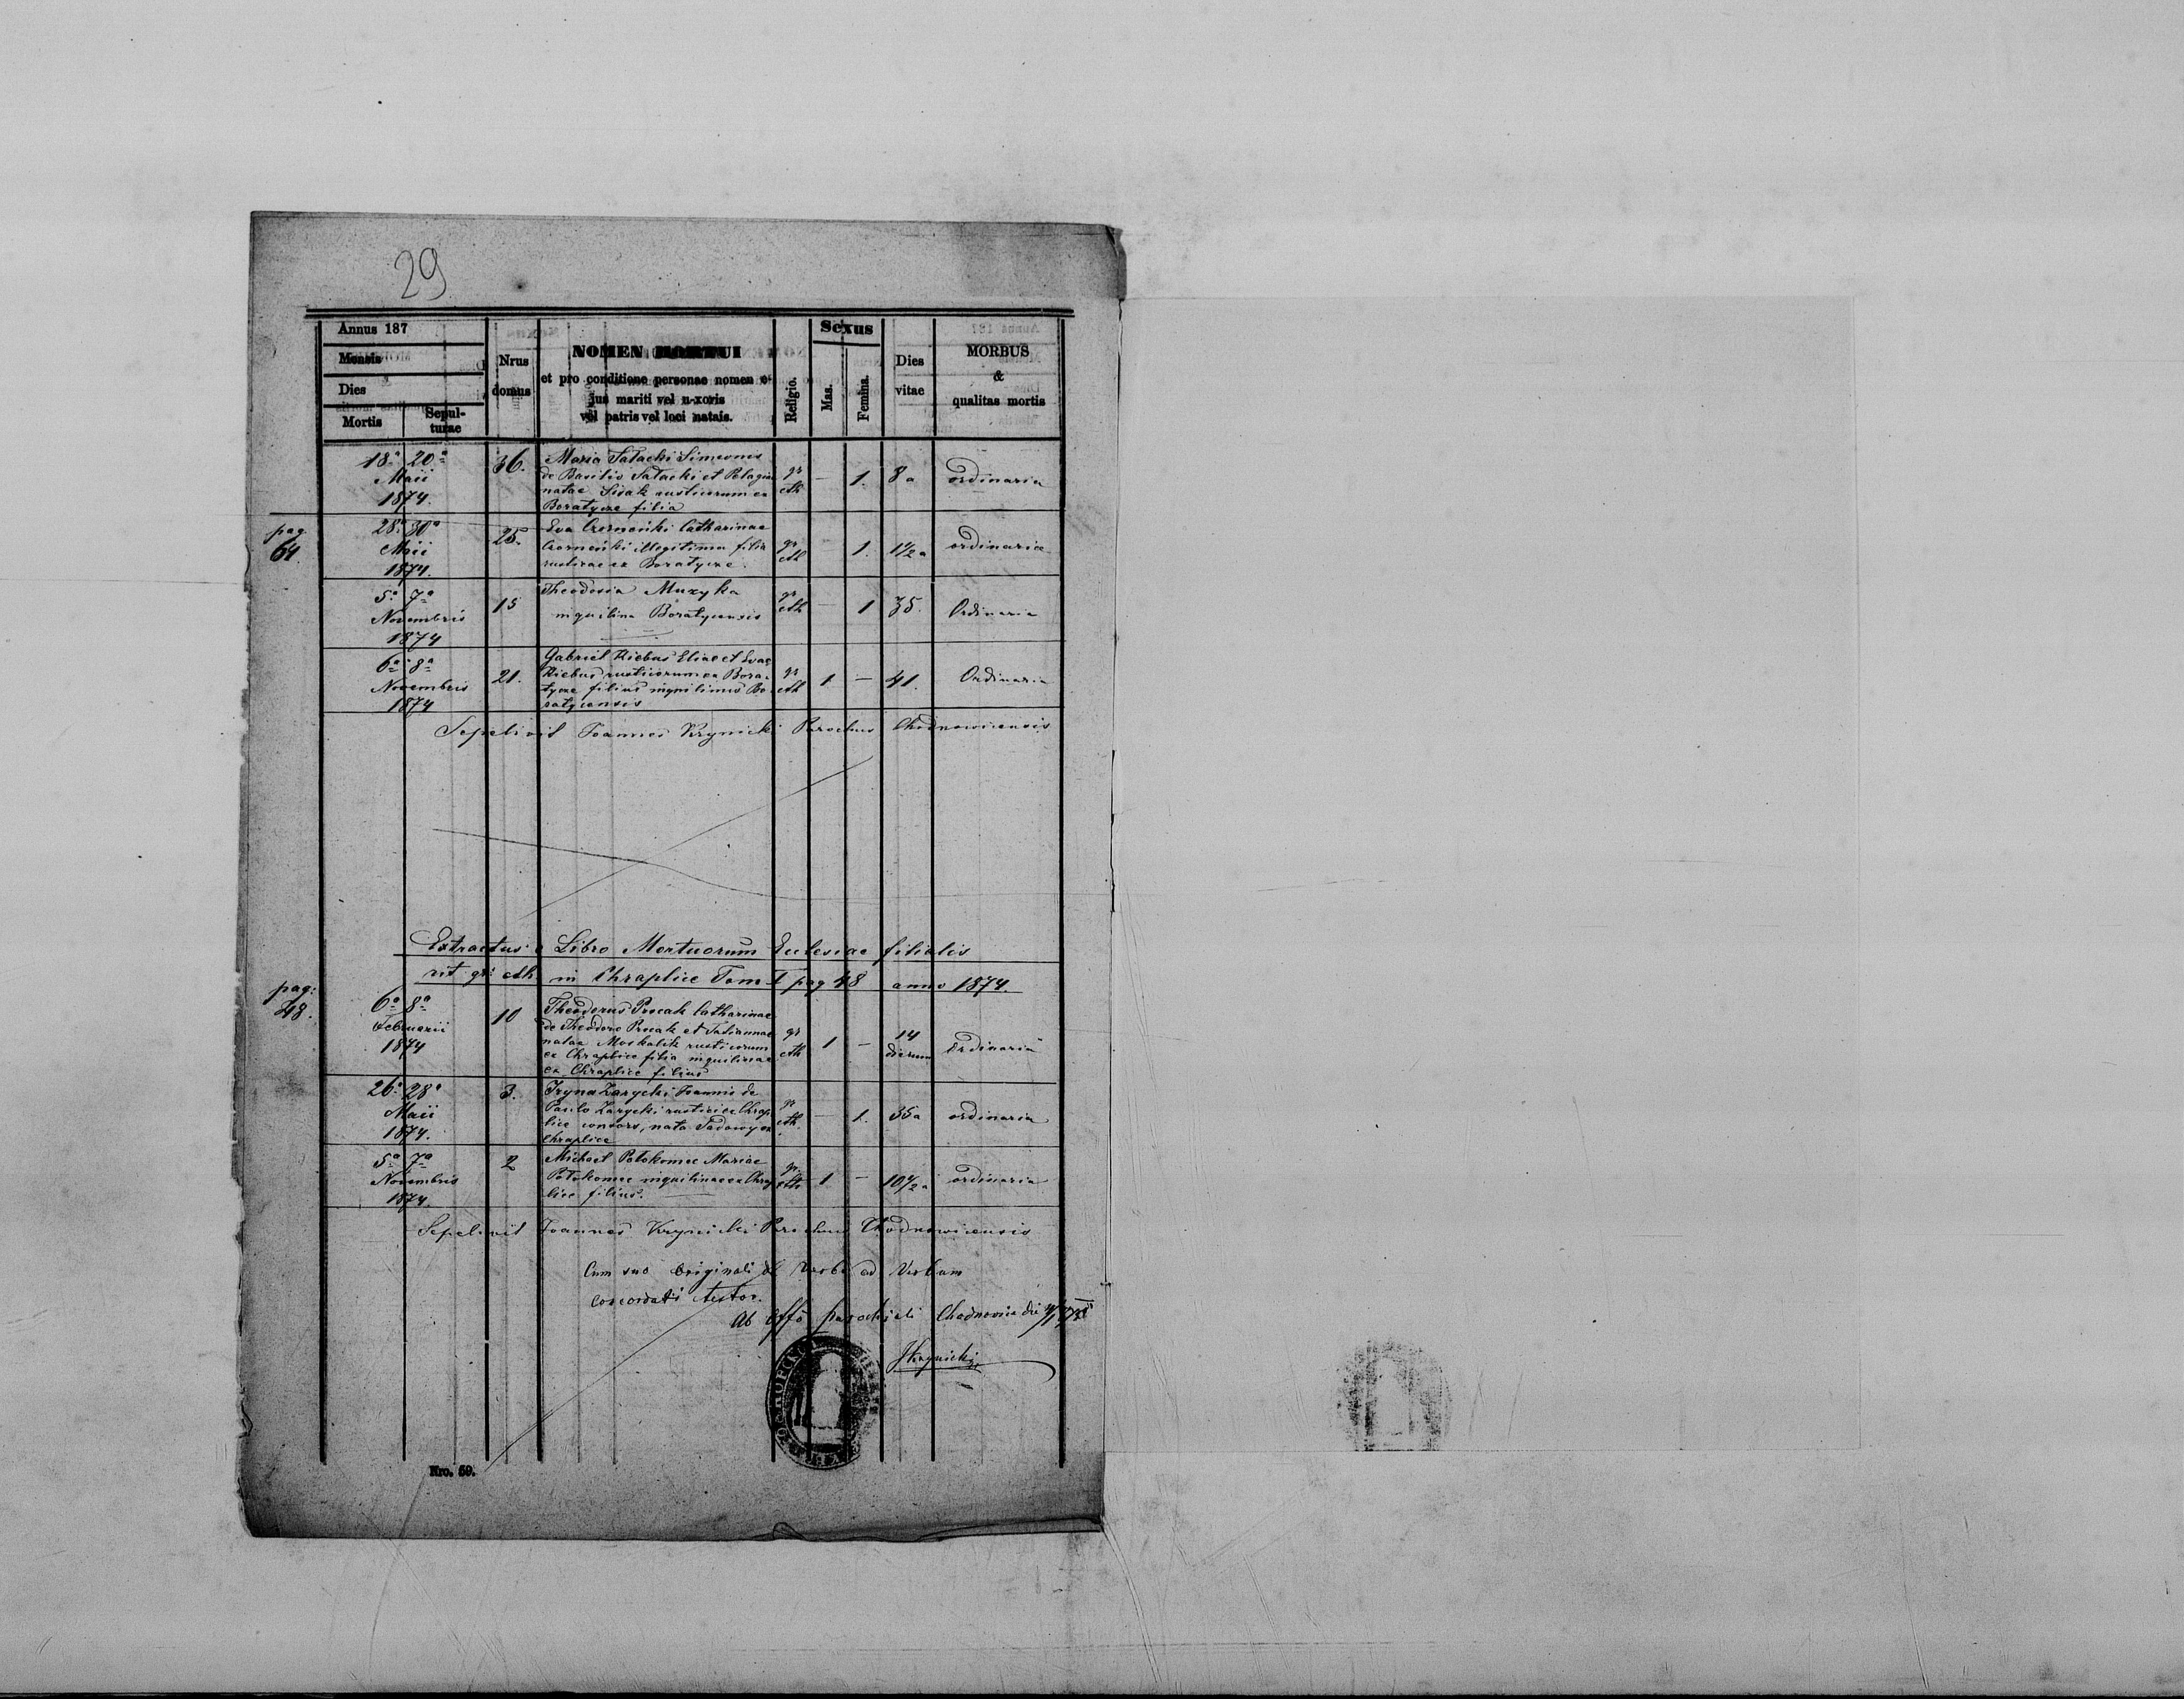 29
Annus 187
Mensis
Dies
Mortis
Sepul-
turae
Nrus
domus
NOMEN MORTUI
et pro conditione personae nomen e-
jus mariti vel u-xoris
vel patris vel loci natais.
Religio.
Sexus
Mas.
Femina.
Dies
vitae
MORBUS
&
qualitas mortis
18a 20a
Maii
1874.
36.
Maria Satacki Simeonis
de Basilio Satacki et Pelagia
natae Sisak rusticorum ex
Boratycze filia
gr
cth
—
1.
8 a
ordinaria
pag.
64.
28a 30a
Maii
1874.
25.
Eva Czerneńki Catharinae
Czerneńki illegitima filia
rusticae ex Boratycze.
gr
cth
—
1.
1 1/2 a
ordinaria
5a 7a
Novembris
1874
15
Theodosia Muzyka
inquilina Boratycensis
gr
cth
—
1
35.
Ordinaria
6a 8a
Novembris
1874
21.
Gabriel Kiebus Eliae et Evae
Kiebus rusticorum ex Bora-
tycze filius inquilinus Bo-
ratycensis
gr
cth
1
—
41.
Ordinaria
Sepelivit Joannes Krynicki Parochus Chodnowicensis
Extractus e Libro Mortuorum Ecclesiae filialis
rit gr: cth in Chraplice Tom I pag 48 anno 1874.
pag:
48.
6a 8a
Februarii
1874
10
Theodorus Procak Catharinae
de Theodoro Procak et Tatiannae
natae Moskalik rusticorum
ex Chraplice filia inquilinae
ex Chraplice filius
gr
cth
1
—
14
dierum
Ordinaria
26a 28a
Maii
1874.
3.
Iryna Zarycki Joannis de
Paulo Zarycki rustici ex Chrap-
lice consors, nata Sadowy ex
Chraplice
gr
cth.
—
1.
35 a
ordinaria
5a 7a
Novembris
1874.
2
Michael Potokomec Mariae
Potokomec inquilinae ex Chrap
lice filius.
gr.
cth
1
—
10 1/2 a
ordinaria
Sepelivit Joannes Krynicki Parochus Chodnowicensis
Cum suo Originali de Verbo ad Verbum
concordati testor.
Ab Offo parochiali Chodnowice die
JKrynicki
Nro. 59.